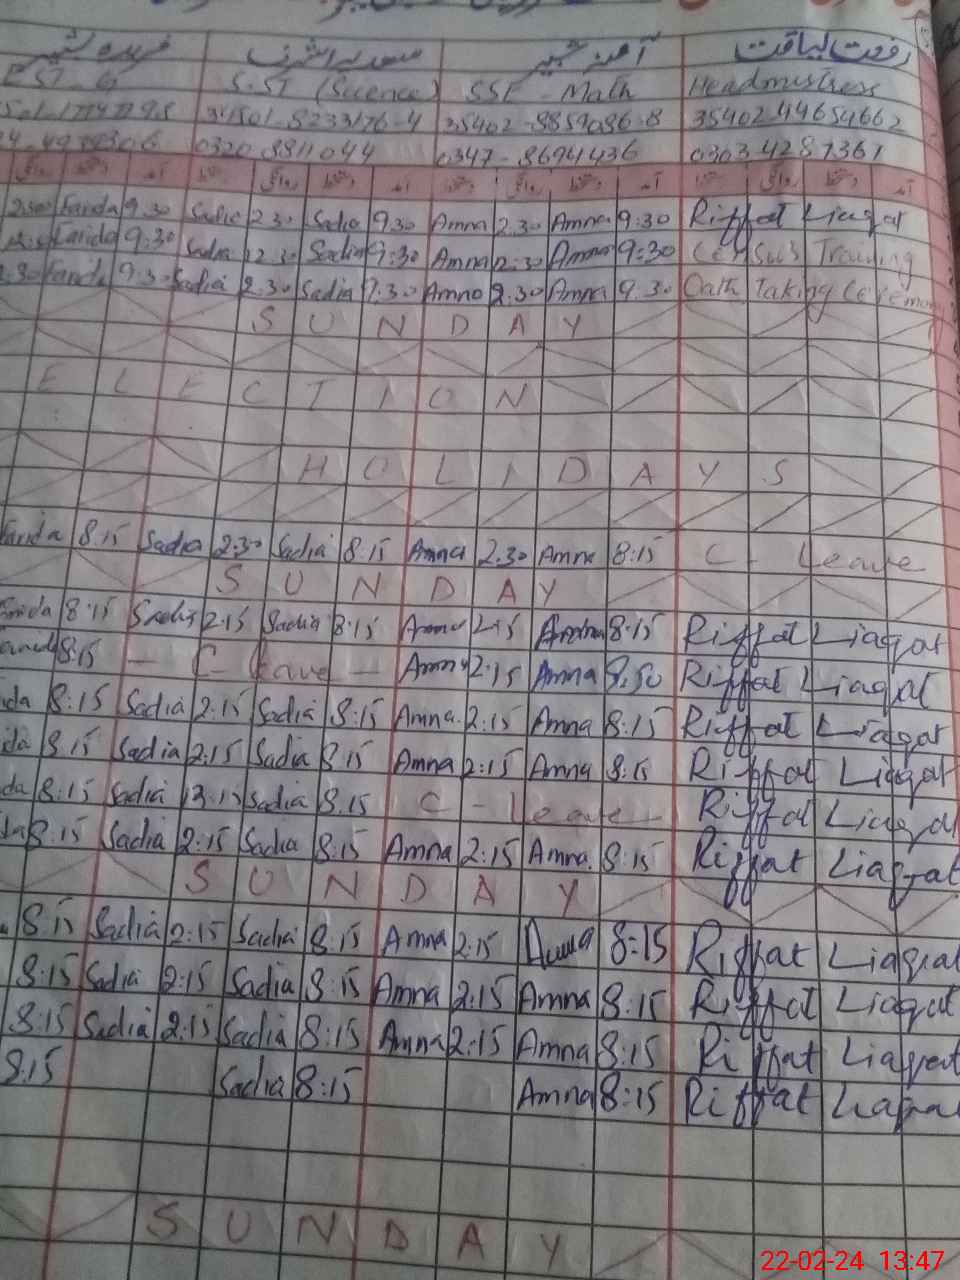 فریدہ بشیر سعدیہ اشرف آمنہ شبیر رفعت لیاقت
EST - G S.ST (Science) SSE - Math Headmistress
34501-8233176-4 35402-8859086-8 35402 4465466 2
0320 8811044 0347-8694436 0303 4287361
آمد دستخط روانگی دستخط آمد دستخط روانگی دستخط آمد
Farida 9.30 Sadia 2.30 Sadia 9.30 Amna 2.30 Amna 9:30 Riffat Liaqat
Farida 9:30 Sadia 12.30 Sadia 9:30 Amna 2:30 Amna 9:30 Training
Farida 9.30 Sadia 2.30 Sadia 9.30 Amna 2.30 Amna 9.30 Oath Taking Ceremony
S U N D A Y
E L E C T I O N
H O L I D A Y S
Farida 8:15 Sadia 2:30 Sadia 8:15 Amna 2.30 Amna 8:15 C - Leave
S U N D A Y
Farida 8:15 Sadia 2:15 Sadia 8:15 Amna 2:15 Amna 8:15 Riffat Liaqat
8:15 - C - Leave - Amna 2:15 Amna 8:50 Riffat Liaqat
ida 8:15 Sadia 2:15 Sadia 8:15 Amna 2:15 Amna 8:15 Riffat Liaqat
ida 8:15 Sadia 2:15 Sadia 8:15 Amna 2:15 Amna 8:15 Riffat Liaqat
da 8:15 Sadia Sadia 8:15 C - Leave - Riffat Liaqat
8:15 Sadia 2:15 Sadia 8:15 Amna 2:15 Amna 8:15 Riffat Liaqat
S U N D A Y
8:15 Sadia 2:15 Sadia 8:15 Amna 2:15 Amna 8:15 Riffat Liaqat
8:15 Sadia 2:15 Sadia 8:15 Amna 2:15 Amna 8:15 Riffat Liaqat
8:15 Sadia 2:15 Sadia 8:15 Amna 2:15 Amna 8:15 Riffat Liaqat
8:15 Sadia 8:15 Amna 8:15 Riffat Liaqat
S U N D A Y
22-02-24 13:47